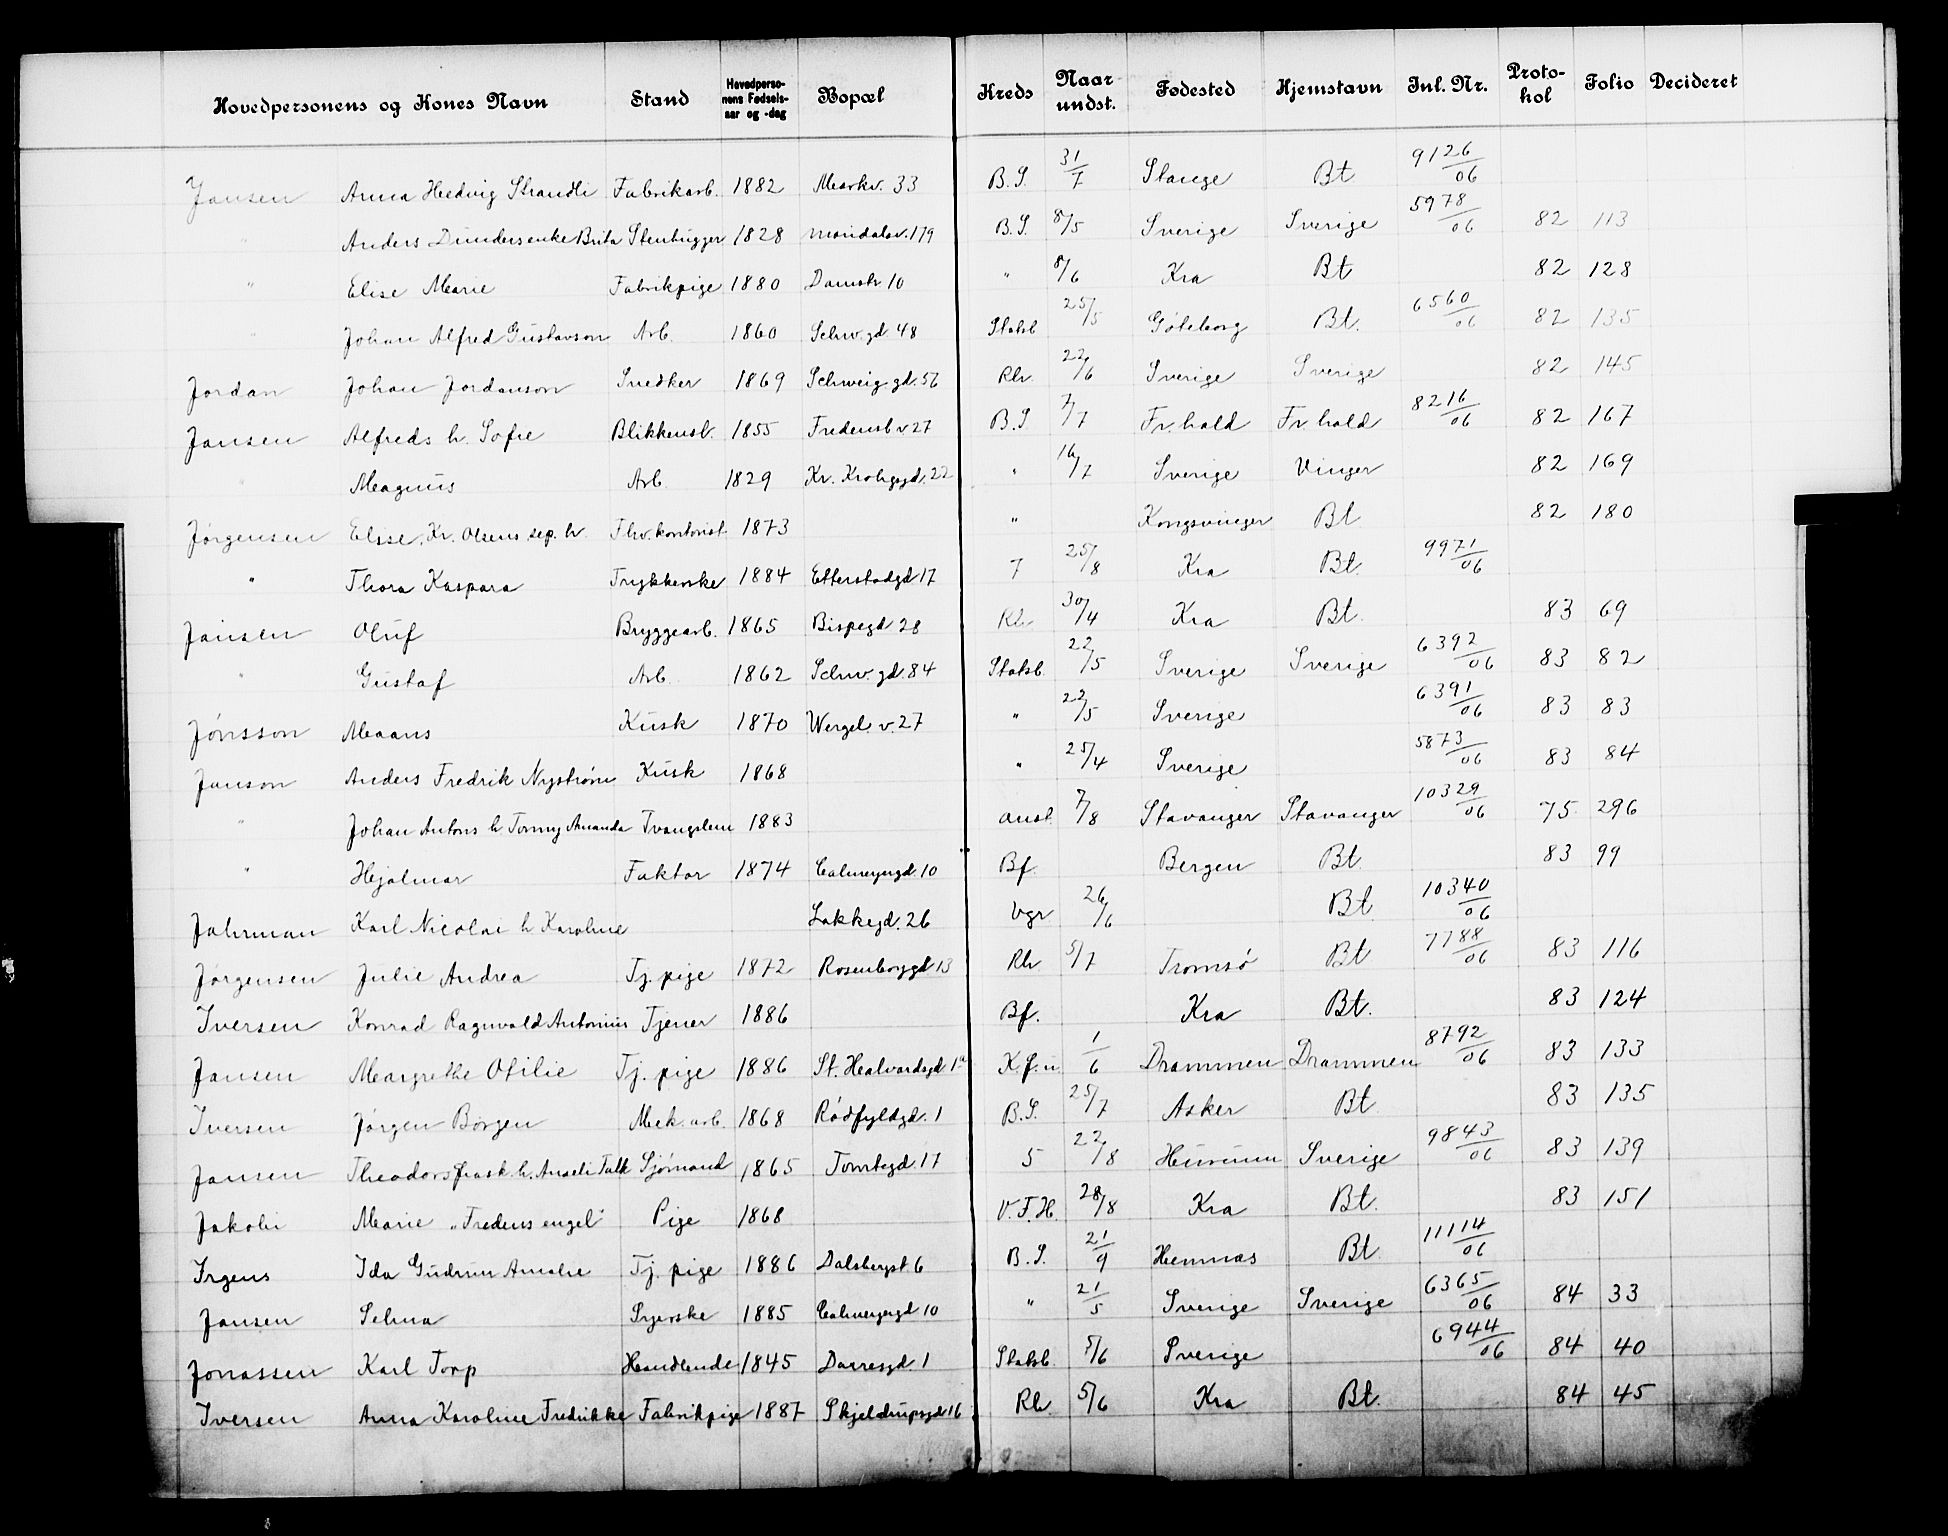 Hovedpersonens og Kones Navn Stand Hovedpersonens Fødselsaar og -dag Bopæl Kreds Naar undst. Fødested Hjemstavn Inl. Nr. Protokol Folio Decideret
Jansen Anna Hedvig Strandli Fabrikarb. 1882 Markv. 33 B.S. 31/7 Stange Bt 9126/06
" Anders Dunders enke Brita Stenhugger 1828 Maridalsv. 179 B.S. 8/5 Sverige Sverige 5978/06 82 113
" Elise Marie Fabrikpige 1880 Damstr 10 " 8/6 Kra Bt 82 128
" Johan Alfred Gustavson Arb. 1860 Schw. gd. 48 Stoksb 25/5 Göteborg Bt. 6560/06 82 135
Jordan Johan Jordanson Snedker 1869 Schweig. gd. 56 Rh. 22/6 Sverige Sverige 82 145
Jansen Alfreds h. Sofie Blikkensl. 1855 Fredensb v 27 B.S 7/7 Fr. hald Fr. hald 8216/06 82 167
" Magnus Arb. 1829 Kr. Krohgsgd. 22 " 16/7 Sverige Vinger 82 169
Jørgensen Elise, Kr. Olsens sep. h. Fhv. kontorist 1873 " Kongsvinger Bt 82 180
" Thora Kaspara Trykkerske 1884 Etterstadgd 17 7 25/8 Kra Bt. 9971/06
Jansen Oluf Bryggearb. 1865 Bispegd 28 Rh. 30/4 Kra Bt. 83 69
" Gustaf Arb. 1862 Schw. gd. 84 Stoksb. 22/5 Sverige Sverige 6392/06 83 82
Jönsson Maans Kusk 1870 Wergel. v. 27 " 22/5 Sverige 6391/06 83 83
Janson Anders Fredrik Nyström Kusk 1868 " 25/4 Sverige 5873/06 83 84
" Johan Antons h Tomny Amanda Tvangslem 1883 anst. 7/8 Stavanger Stavanger 10329/06 75 296
" Hjalmar Faktor 1874 Calmeyergd. 10 Bf. Bergen Bt. 83 99
Jahrman Karl Nicolai h Karoline Lakkegd. 26 Vgr 26/6 Bt. 10340/06
Jørgensen Julie Andrea Tj. pige 1872 Rosenborggd 13 Rh 5/7 Tromsö Bt 7788/06 83 116
Iversen Konrad Ragnvald Antonius Tjener 1886 Bf. Kra Bt. 83 124
Jansen Margrethe Otilie Tj. pige 1886 St. Halvardsgd 1a K.f.u. 1/6 Drammen Drammen 8792/06 83 133
Iversen Jørgen Børgen Mek. arb. 1868 Rødfyldgd. 1 B.S. 25/7 Asker Bt. 83 135
Jansen Theodors frask. h. Amalie Falk Sjömand 1865 Tomtegd. 17 5 22/8 Hurum Sverige 9843/06 83 139
Jakobi Marie „Fredens engel" Pige 1868 V.F.H. 28/8 Kra Bt. 83 151
Irgens Ida Gudrun Amalie Tj. pige 1886 Dalsbergst 6 B.S. 21/9 Hemnæs Bt. 11114/06
Jansen Selma Syerske 1885 Calmeyergd 10 " 21/5 Sverige Sverige 6365/06 84 33
Jonassen Karl Torp Handlende 1845 Darresgd. 1 Stoksb. 5/6 Sverige 6944/06 84 40
Iversen Anna Karoline Fredrikke Fabrikpige 1887 Skjeldrupsgd 16 Rh. 5/6 Kra Bt. 84 45